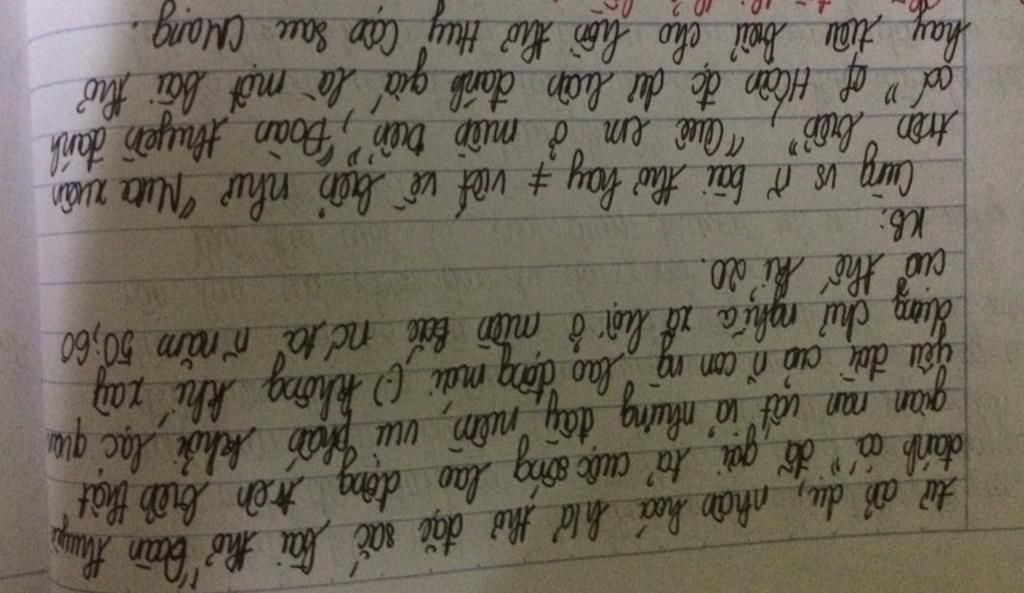 từ ẩn dụ, nhân hoá h/a thơ đặc sắc bài thơ "Đoàn thuyền
đánh cá" đã gợi tả cuộc sống lao động trên biển thật
gian nan vất vả nhưng đầy niềm vui phấn khởi lạc quan
yêu đời của n~ con ng lao động mới (-) không khí xây
dựng chủ nghĩa xã hội ở miền Bắc nc ta n~ năm 50, 60
của thế kỉ 20.
KB:
Cùng vs n~ bài thơ hay ≠ viết về biển như "Mưa xuân
trên biển", "Quê em ở miền biển", "Đoàn thuyền đánh
cá" of HCận đc dư luận đánh giá là một bài thơ
hay tiêu biểu cho hồn thơ Huy Cận sau CMạng.